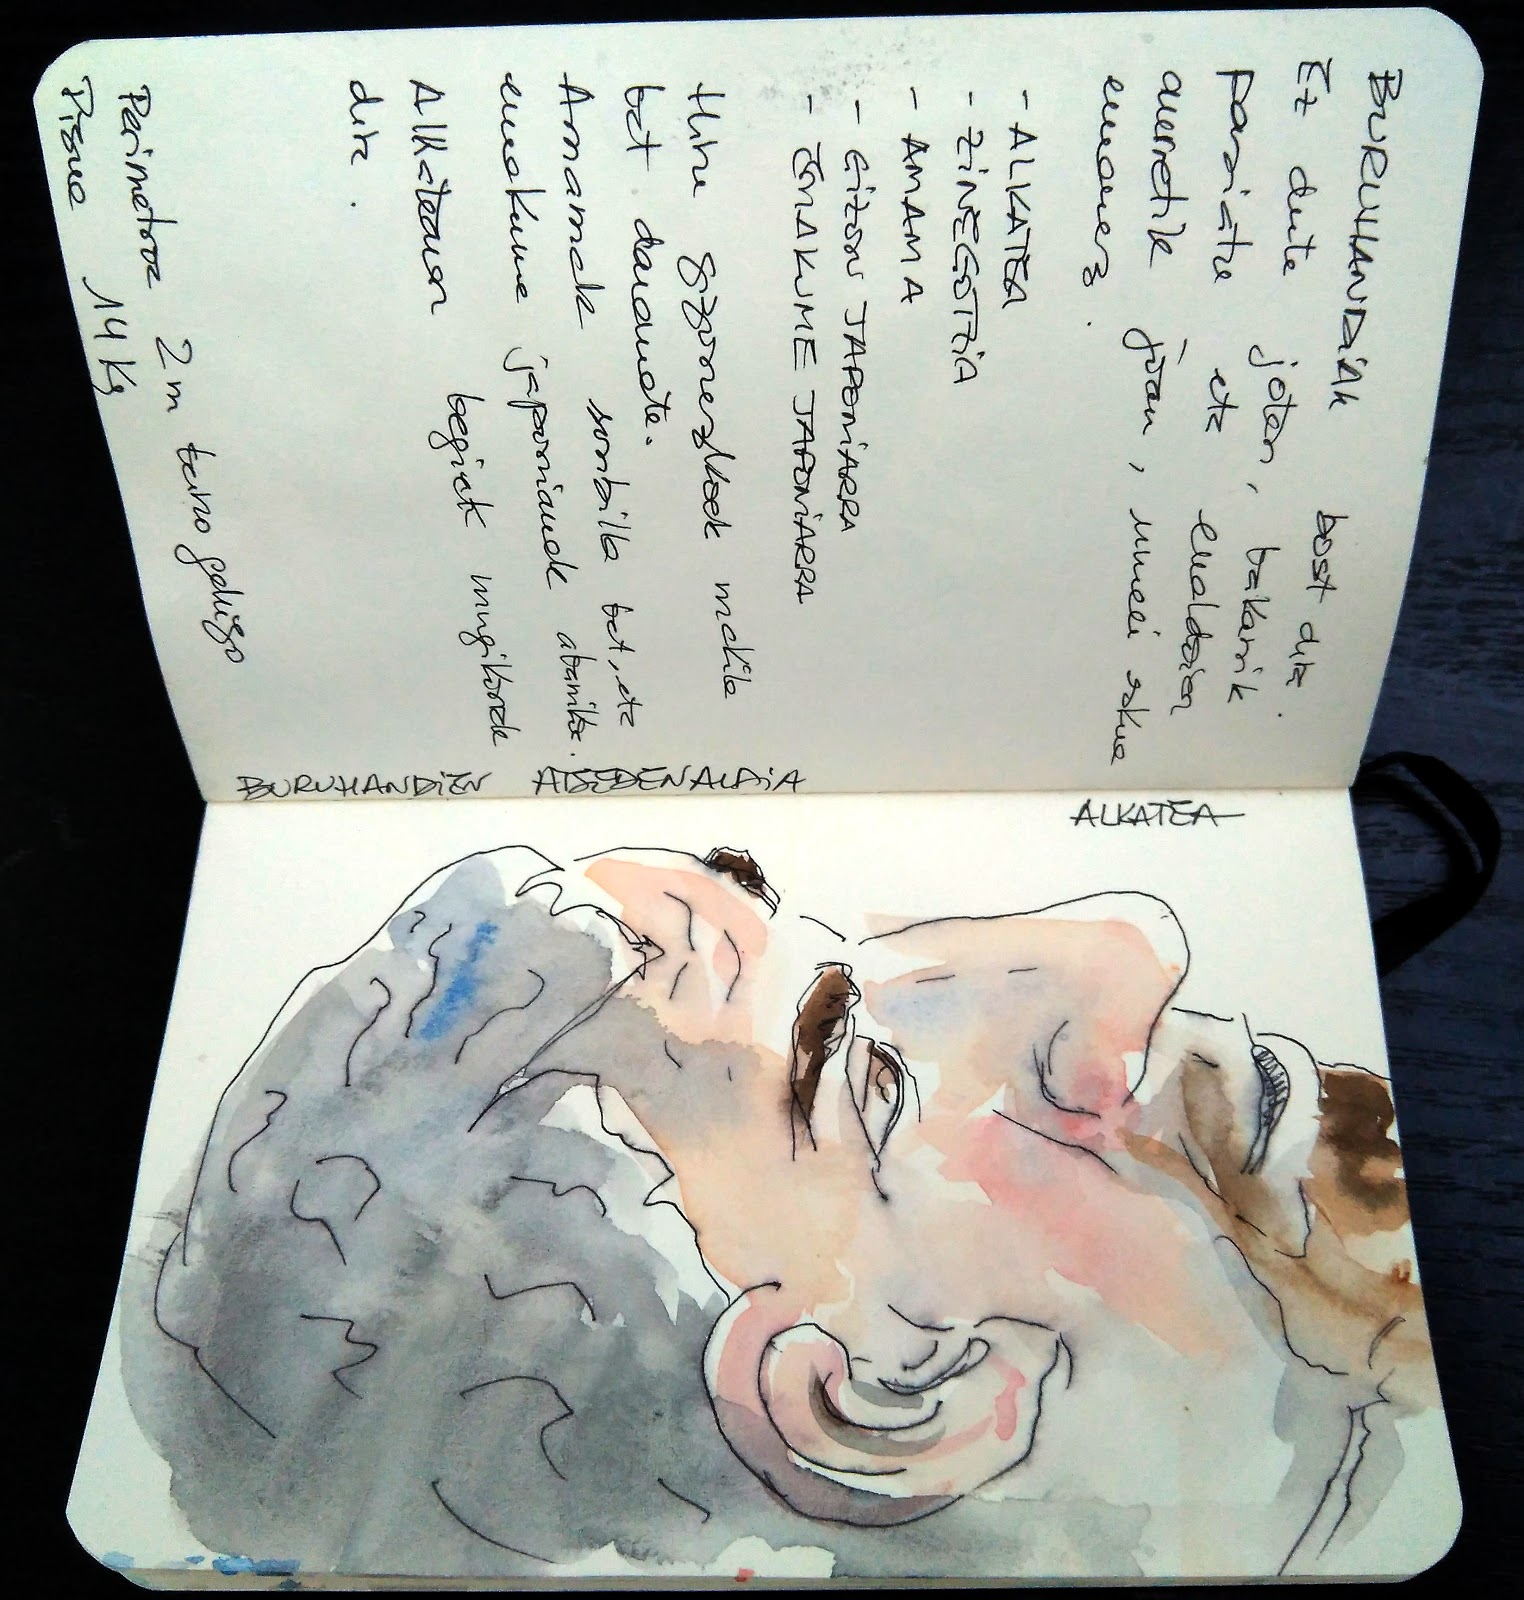 BURUHANDIAK bost dira.
Ez dute joten, bakarrik
paseatu eta emakideen
aurretik joan, umeei eskua
emanez.
- ALKATEA
- ZINEGOTZIA
- AMAMA
- GIZON JAPONIARRA
- EMAKUME JAPONIARRA
Hiru gizonezkoek makila
bat daramate.
Amamak sonbrilla bat, eta
emakume japoniarrak abanikoa.
Alkatearen begiak mugikorrak
dira.
Perimetroa 2 m baino gehiago
Pisua 14 kg
BURUHANDIEN ATSEDENALDIA
ALKATEA